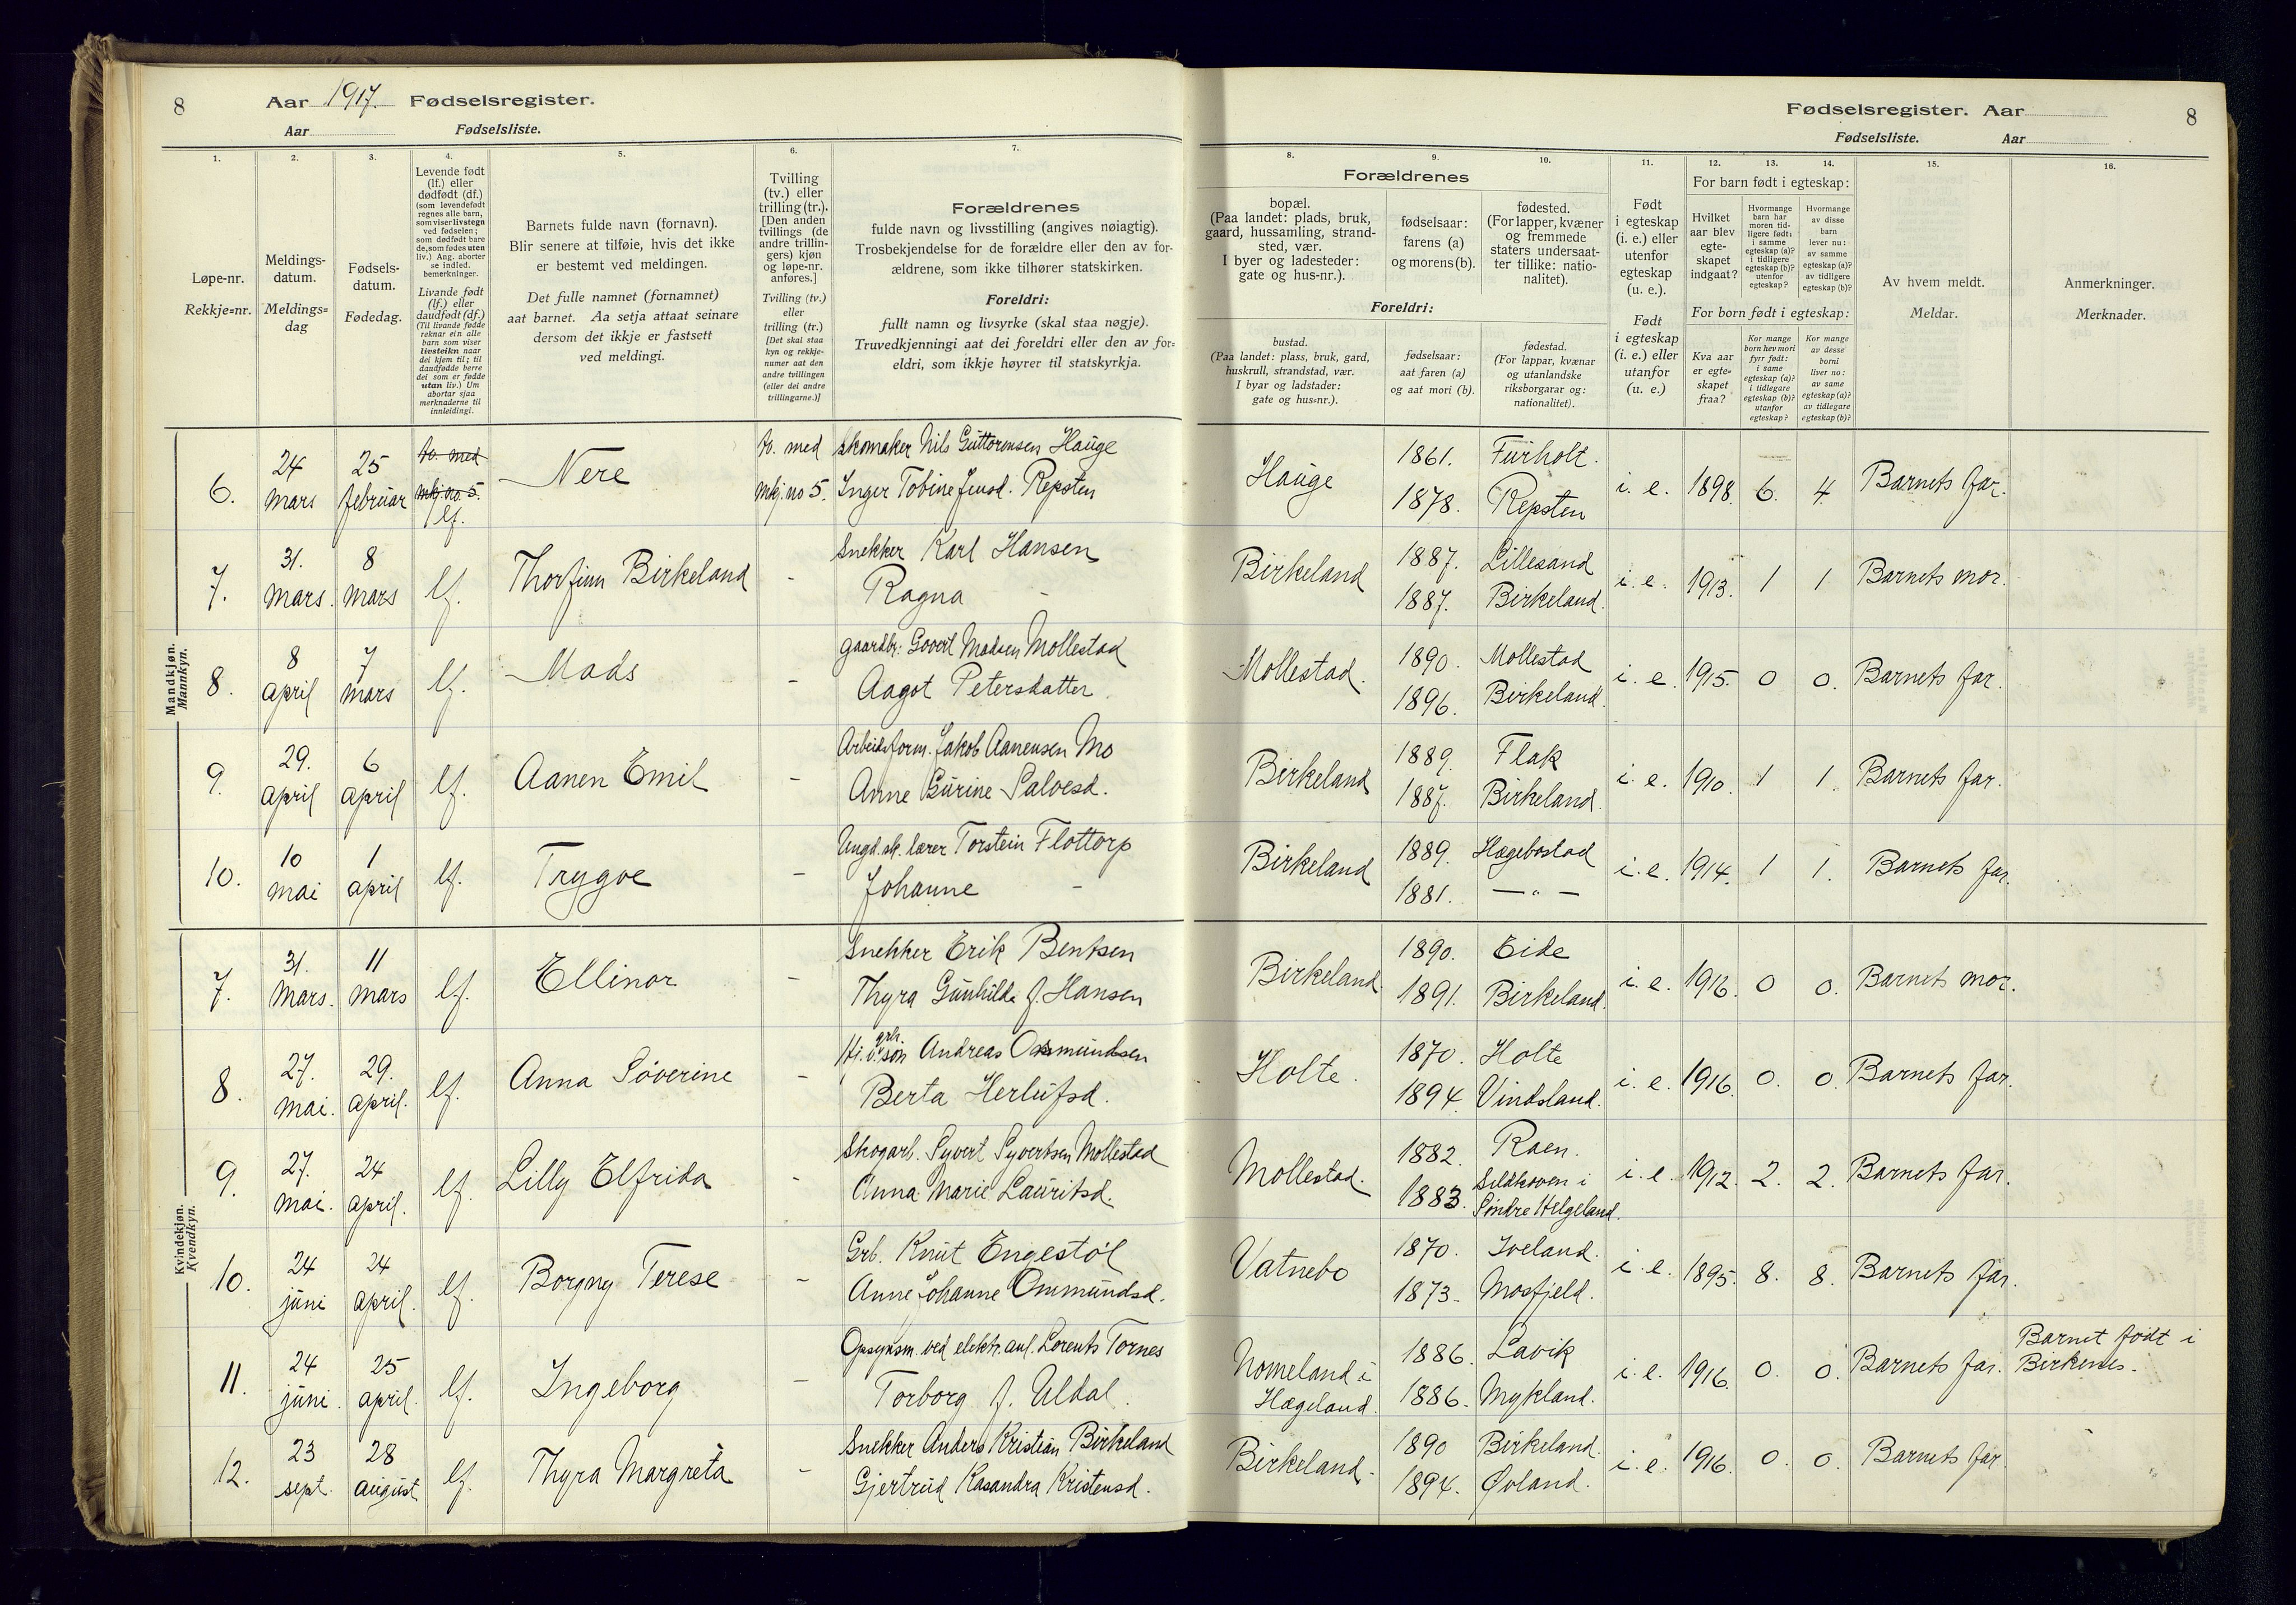 8 Aar 1917. Fødselsregister.
Aar Fødselsliste.
Fødselsregister. Aar 8
Fødselsliste. Aar
1. 2. 3. 4. 5. 6. 7. 8. 9. 10. 11. 12. 13. 14. 15. 16.
Løpe-nr.
Rekkje=nr.
Meldings-
datum.
Meldings=
dag
Fødsels-
datum.
Fødedag.
Levende født
(lf.) eller
dødfødt (df.)
(som levendefødt
regnes alle barn,
som viser livstegn
ved fødselen;
som dødfødt bare
de, som fødes uten
liv.) Ang. aborter
se indled.
bemerkninger.
Livande født
(lf.) eller
daudfødt (df.)
(Til livande fødde
reknar ein alle
barn som viser
livsteikn naar
dei kjem til; til
daudfødde berre
dei som er fødde
utan liv.) Um
abortar sjaa
merknaderne til
innleidingi.
Barnets fulde navn (fornavn).
Blir senere at tilføie, hvis det ikke
er bestemt ved meldingen.
Det fulle namnet (fornamnet)
aat barnet. Aa setja attaat seinare
dersom det ikkje er fastsett
ved meldingi.
Tvilling
(tv.) eller
trilling (tr.).
[Den anden
tvillings (de
andre trillin-
gers) kjøn
og løpe-nr.
anføres.]
Tvilling (tv.)
eller
trilling (tr.)
[Det skal staa
kyn og rekkje-
numer aat den
andre tvillingen
(eller dei andre
trillingarne.)]
Forældrenes
fulde navn og livsstilling (angives nøiagtig).
Trosbekjendelse for de forældre eller den av for-
ældrene, som ikke tilhører statskirken.
Foreldri:
fullt namn og livsyrke (skal staa nøgje).
Truvedkjenningi aat dei foreldri eller den av for=
eldri, som ikkje høyrer til statskyrkja.
Forældrenes
bopæl.
(Paa landet: plads, bruk,
gaard, hussamling, strand-
sted, vær.
I byer og ladesteder:
gate og hus-nr.).
fødselsaar:
farens (a)
og morens (b).
fødested.
(For lapper, kvæner
og fremmede
staters undersaat-
ter tillike: natio-
nalitet).
Foreldri:
bustad.
(Paa landet: plass, bruk, gard,
huskrull, strandstad, vær.
I byar og ladstader:
gate og hus=nr.).
fødselsaar:
aat faren (a)
og aat mori (b).
fødestad.
(For lappar, kvænar
og utanlandske
riksborgarar og:
nationalitet).
Født
i egteskap
(i. e.) eller
utenfor
egteskap
(u. e.).
Født
i egteskap
(i. e.) eller
utanfor
(u. e.)
For barn født i egteskap:
Hvilket
aar blev
egte-
skapet
indgaat?
Hvormange
barn har
moren tid-
ligere født:
i samme
egteskap (a)?
i tidligere
egteskap (b)?
utenfor
egteskap?
Hvormange
av disse
barn
lever nu:
av samme
egteskap (a)?
av tidligere
egteskap (b)?
For born født i egteskap:
Kva aar
er egte-
skapet
fraa?
Kor mange
born hev mori
fyrr født:
i same
egteskap (a)?
i tidlegare
egteskap (b)?
utanfor
egteskap?
Kor mange
av desse
borni
liver no:
av same
egteskap (a)?
av tidlegare
egteskap (b)?
Av hvem meldt.
Meldar.
Anmerkninger.
Merknader.
Mandkjøn.
Mannkyn.
6. 24 mars 25 februar tv. med mkj. no 5. lf. Nere tv. med mkj. no 5. Skomaker Nils Guttormsen Hauge
Inger Tobine Jensd. Repsten
Hauge 1861. Furholt. 1878. Repsten i. e. 1898. 6. 4 Barnets far.
7. 31. mars. 8 mars lf. Thorfinn Birkeland - Snekker Karl Hansen
Ragna -
Birkeland 1887. Lillesand 1887. Birkeland. i. e. 1913. 1 1 Barnets mor.
8. 8 april 7 mars lf. Mads - gaardbr. Govert Madsen Mollestad
Aagot Petersdatter.
Mollestad. 1890. Mollestad 1896. Birkeland. i. e. 1915. 0 0. Barnets far.
9. 29. april 6 april lf. Aanen Emil - Arbeidsform. Jakob Aanensen Mo
Anne Gurine Salvesd.
Birkeland 1889. Flak 1887. Birkeland. i. e. 1910. 1 1. Barnets far.
10. 10 mai 1 april lf. Trygve - Ungd. sk. lærer Torstein Flottorp
Johanne -
Birkeland 1889. Hægebostad 1881. — " — i. e. 1914. 1 1. Barnets far.
Kvindekjøn.
Kvendkyn.
7. 31. mars. 11 mars lf. Ellinor - Snekker Erik Bentsen
Thyra Gunhilde f. Hansen
Birkeland 1890. Eide 1891. Birkeland. i. e. 1916. 0 0. Barnets mor.
8. 27. mai. 29. april. lf. Anna Søverine - grb. Andreas Osmundsen
Berta Herlufsd.
Holte. 1870. Holte 1894. Vindsland. i. e. 1916. 0. 0. Barnets far.
9. 27. mai. 24 april. lf. Lilly Elfrida - Skogarb. Syvert Syvertsen Mollestad
Anna Marie Lauritsd.
Mollestad. 1882. Raen. 1883. i
Søndre Helgeland. i. e. 1912. 2. 2. Barnets far.
10. 24 juni 24 april. lf. Borgny Terese - Grb. Knut Engestøl
Anne Johanne Ommundsd.
Vatnebo 1870. Iveland. 1873. Mosfjeld. i. e. 1895. 8. 8. Barnets far.
11. 24 juni. 25 april. lf. Ingeborg - Opsynsm. ved elektr. anl. Lorents Tornes
Torborg f. Uldal.
Nomeland i
Hægeland. 1886. Lavik 1886. Mykland. i. e. 1916. 0. 0. Barnets far. Barnet født i
Birkenes.
12. 23 sept. 28 august lf. Thyra Margreta - Snekker Anders Kristian Birkeland
Gjertrud Kasandra Kristensd.
Birkeland. 1890 Birkeland. 1894. Øvland. i. e. 1916. 0. 0. Barnets far.